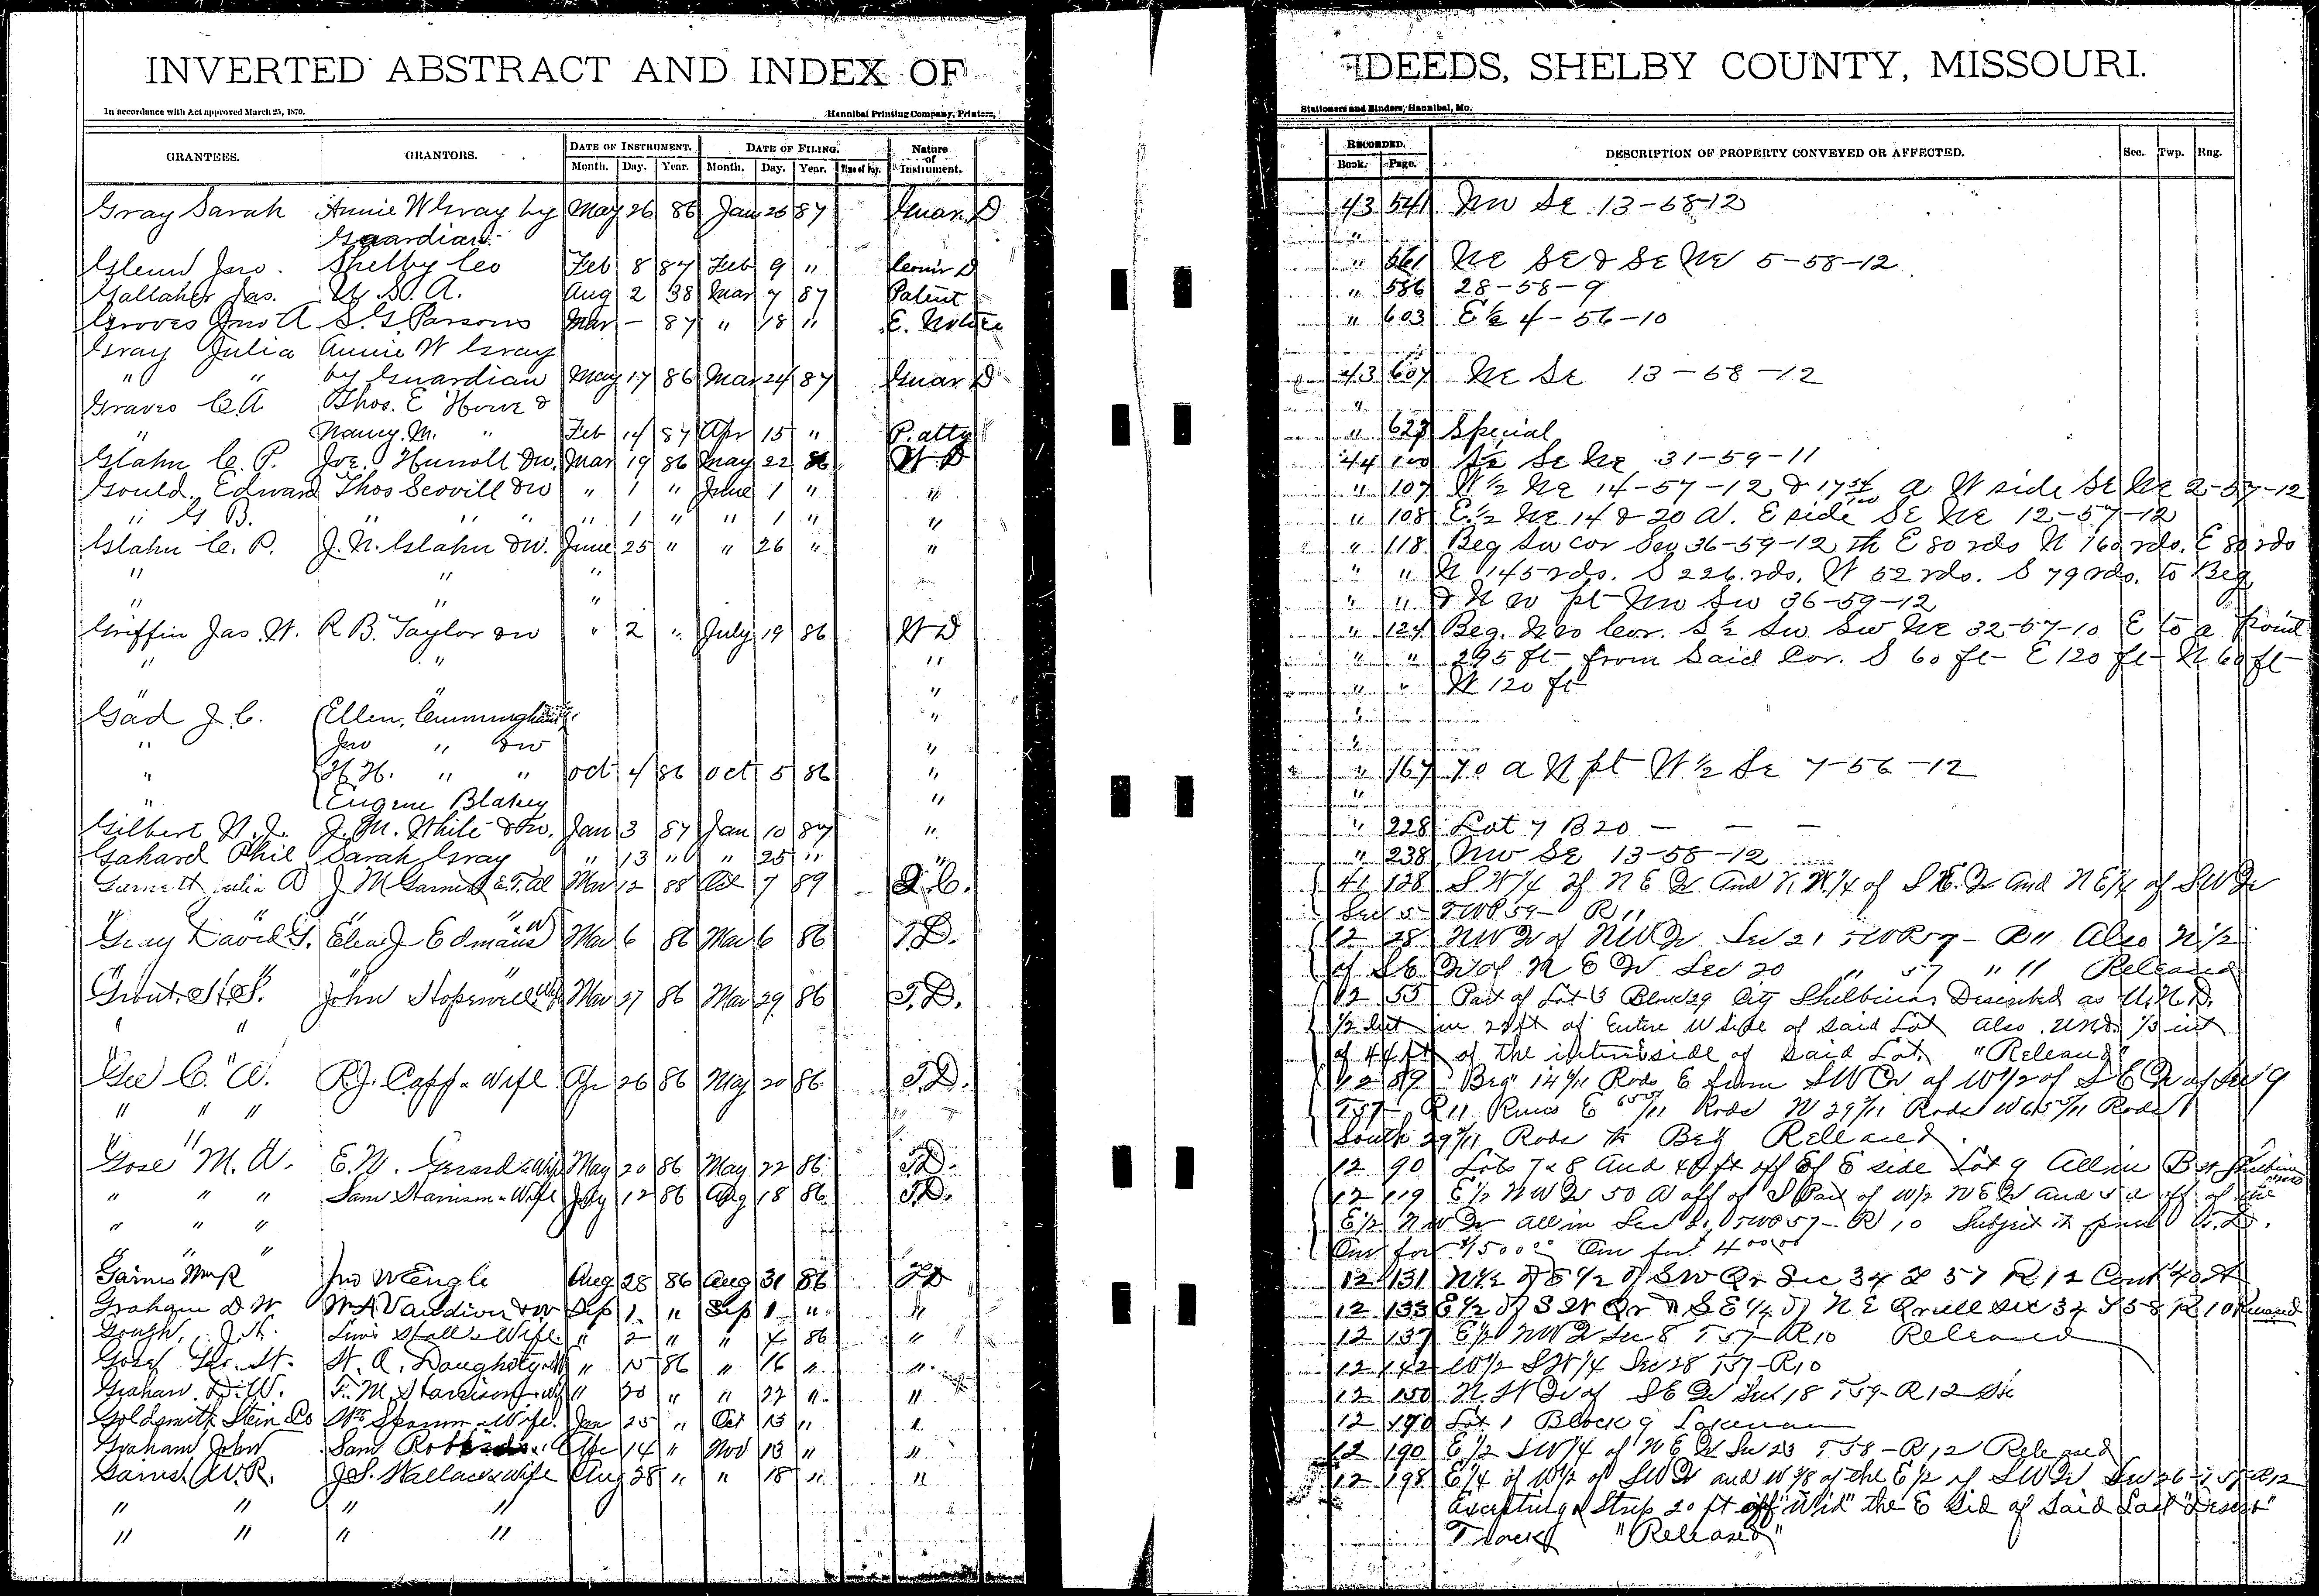 INVERTED ABSTRACT AND INDEX OF DEEDS, SHELBY COUNTY, MISSOURI.
In accordance with Act approved March 25, 1870. Hannibal Printing Company, Printers, Stationers and Binders, Hannibal, Mo.
GRANTEES. GRANTORS. DATE OF INSTRUMENT. DATE OF FILING. Nature of Instrument. RECORDED. DESCRIPTION OF PROPERTY CONVEYED OR AFFECTED. Sec. Twp. Rng.
Month. Day. Year. Month. Day. Year. Time of Day. Book. Page.
Gray Sarah Annie W Gray by May 26 86 Jan 25 87 Guar. D 43 541 NW SE 13-58-12
Guardian "
Glenn Jno. Shelby Co Feb 8 87 Feb 9 " Comr D " 561 NE SE & SE NE 5-58-12
Gallaher Jas. U.S.A. Aug 2 38 Mar 7 87 Patent " 586 28-58-9
Groves Jno A S.G. Parsons Mar - 87 " 18 " E. Notice " 603 E½ 4-56-10
Gray Julia Annie W Gray
" " by Guardian May 17 86 Mar 24 87 Guar D 43 607 NE SE 13-58-12
Graves C.A Thos. E Howe & "
" Nancy. M. " Feb 14 87 Apr 15 " P. atty " 623 Special
Glahn C. P. Joe. Hunolt &w. Mar 19 86 May 22 86 W D 44 100 SE NE 31-59-11
Gould. Edward Thos Scovill &w " 1 " June 1 " " " 107 W½ NE 14-57-12 & 17 54/100 a W side SE NE 2-57-12
" G B. " " " " 1 " " 1 " " " 108 E½ NE 14 & 20 A. E side SE NE 12-57-12
Glahn C. P. J. N. Glahn &w. June 25 " " 26 " " " 118 Beg SW cor SW 36-59-12 th E 80 rds N 160 rds. E 80 rds
" " " " " N 145 rds. S 226. rds. W 52 rds. S 79 rds. to Beg
" " " " " & N W pt NW SW 36-59-12
Griffin Jas. W. R B. Taylor &w " 2 " July 19 86 W D " 124 Beg. NW Cor. S½ SW SW NE 32-57-10 E to a point
" " " " " 295 ft from said Cor. S 60 ft E 120 ft N 60 ft
" " " " " W 120 ft
Gad J. C. Ellen, Cunningham " "
" Jno " &w " "
" H H. " " Oct 4 86 Oct 5 86 " " 167 70 a N pt W½ SE 7-56-12
" Eugene Blakey " "
Gilbert W. J. J. M. White & w. Jan 3 87 Jan 10 87 " " 228 Lot 7 B 20 — — —
Gahard Phil Sarah Gray " 13 " " 25 " " " 238 NW SE 13-58-12
Garnett Julia A J M Garnett E.T. Al Mar 12 88 Oct 7 89 Q. C. 41 128 S W¼ of N E Qr and N W¼ of S E. Qr and N E¼ of SW Qr
" " " Sec 5 TWP 59 R 11
Gray David G. Eliza J Edmans Mar 6 86 Mar 6 86 T.D. 12 28 NW Qr of NW Qr Sec 21 TWP 57 - R 11 Also N ½
" " of S E Qr of N E Qr Sec 20 " 57 " 11 Released
Grout. H.S. John Hopewell Mar 27 86 Mar 29 86 T.D. 12 55 Part of Lot 3 Block 29 City Shelbina Described as U.N.D.
" " ½ Int in 22 ft of Entire W side of said Lot Also UND ½ int
of 44 ft of the side of said Lot "Released"
Gee C. A. R.J. Capp & Wife Apr 26 86 May 20 86 T.D. 12 89 Beg 14 Rods E from SW Qr of W ½ of S E Qr of Sec 9
" " " T57- R11 Runs E Rods N 29 Rods W 65 Rods
South 29 Rods to Beg Released
Gose M. A. E. W. Gerard & Wife May 20 86 May 22 86 T.D. 12 90 Lots 7 & 8 And 44 ft off of E side Lot 9 All in B Shelbina
" " " Sam Harrison & Wife July 12 86 Aug 18 86 T.D. 12 119 E½ N W Qr 50 A off of S Part of W½ N E Qr and a off of the
" " " E½ N W Qr all in Sec TWP 57- R 10 Subject to D.T.
" " " One for $1500 One for $400
Gaines Wm R Jno W Engle Aug 28 86 Aug 31 86 TD 12 131 N½ of E½ of SW Qr Sec 34 T 57 R 12 Cont 40 A
Graham D W W A Vandiver & W Sep 1 " Sep 1 " " 12 133 E½ of S W Qr & S E¼ of N E Qr all Sec 32 T 58 R 10
Gough, J. H. Stall & Wife " 2 " " 4 86 " 12 137 E½ NW Qr Sec 8 T 57- R 10 Released
Gose Geo. H. H. A. Daugherty " 15 86 " 16 " " 12 142 W½ S W¼ Sec 28 T 57- R 10
Graham D.W. F. M. Harrison " 20 " " 22 " " 12 150 N. W Qr of S E Qr Sec 18 T 59- R 12
Goldsmith Stein Co Wm Spann & Wife Jan 25 " Oct 13 " " 12 170 Lot 1 Block 9 Lakenan
Graham John Sam 14 " Nov 13 " " 12 190 E½ SW¼ of N E Qr Sec 23 T 58- R 12 Released
Gaines W.R. J.S. Wallace & Wife Aug 28 " " 18 " " 12 198 E¼ of W½ of SW Qr and W ⅞ of the E½ of SW Qr Sec 26-T 57-R 12
" " " " Excepting a Strip 20 ft off Wid" the E Sid of Said Last "Descr"
" " " " Tract "Released"